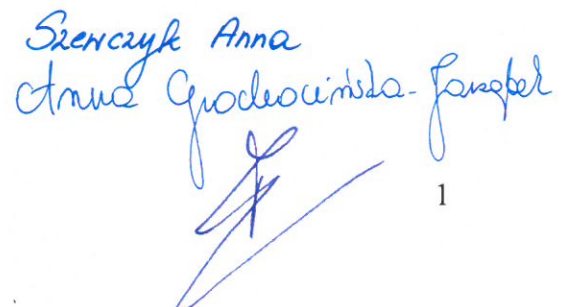 Szewczyk Anna
Anna Grochocińska-Jarząbek
1